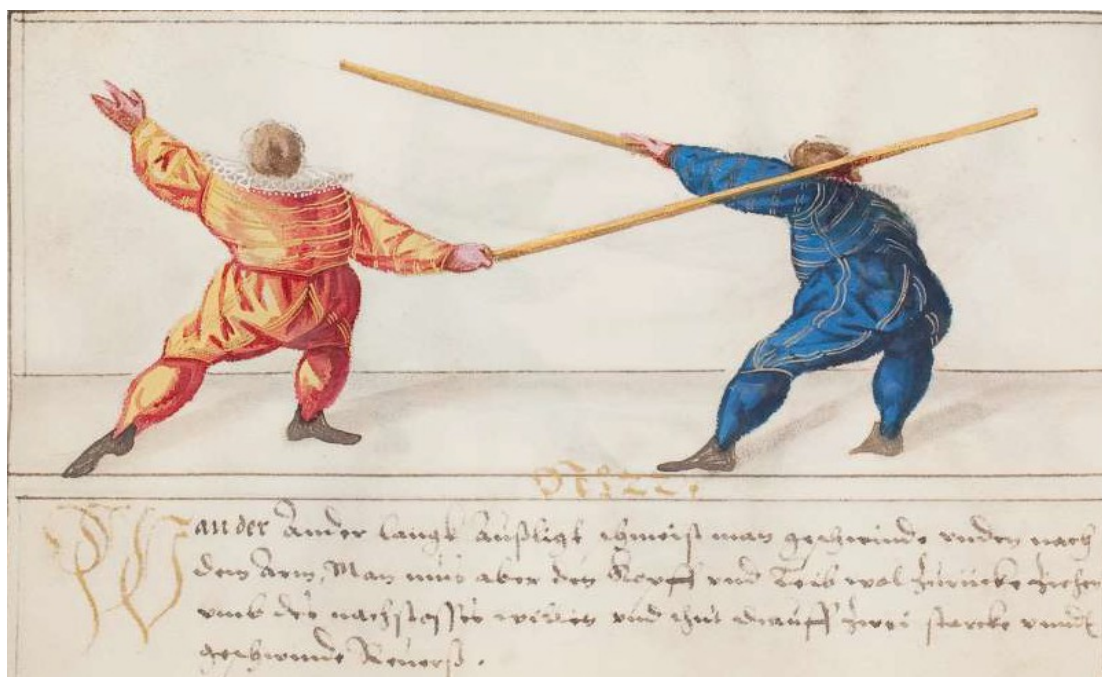 Wan der Ander langk Außligt schmeist man geschwinde vnden nach
dem Arm, Man mus aber den Kopff vnd Leib wol zurücke ziehen
vmb des willen vnd thut drauff zwei starcke
geschwinde Reuerß.